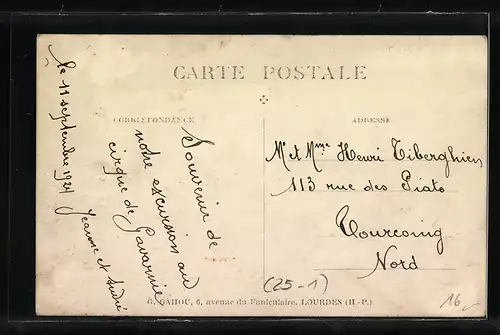 CARTE POSTALE
CORRESPONDANCE
ADRESSE
le 11 septembre 1924
Souvenir de
notre excursion au
cirque de Gavarnie
Jeanne et André
Mr et Mme Henri Tiberghien
113 rue des Piats
Tourcoing
Nord
(25-1)
16
G. GAHOU, 6, avenue du Funiculaire, LOURDES (H-P.)